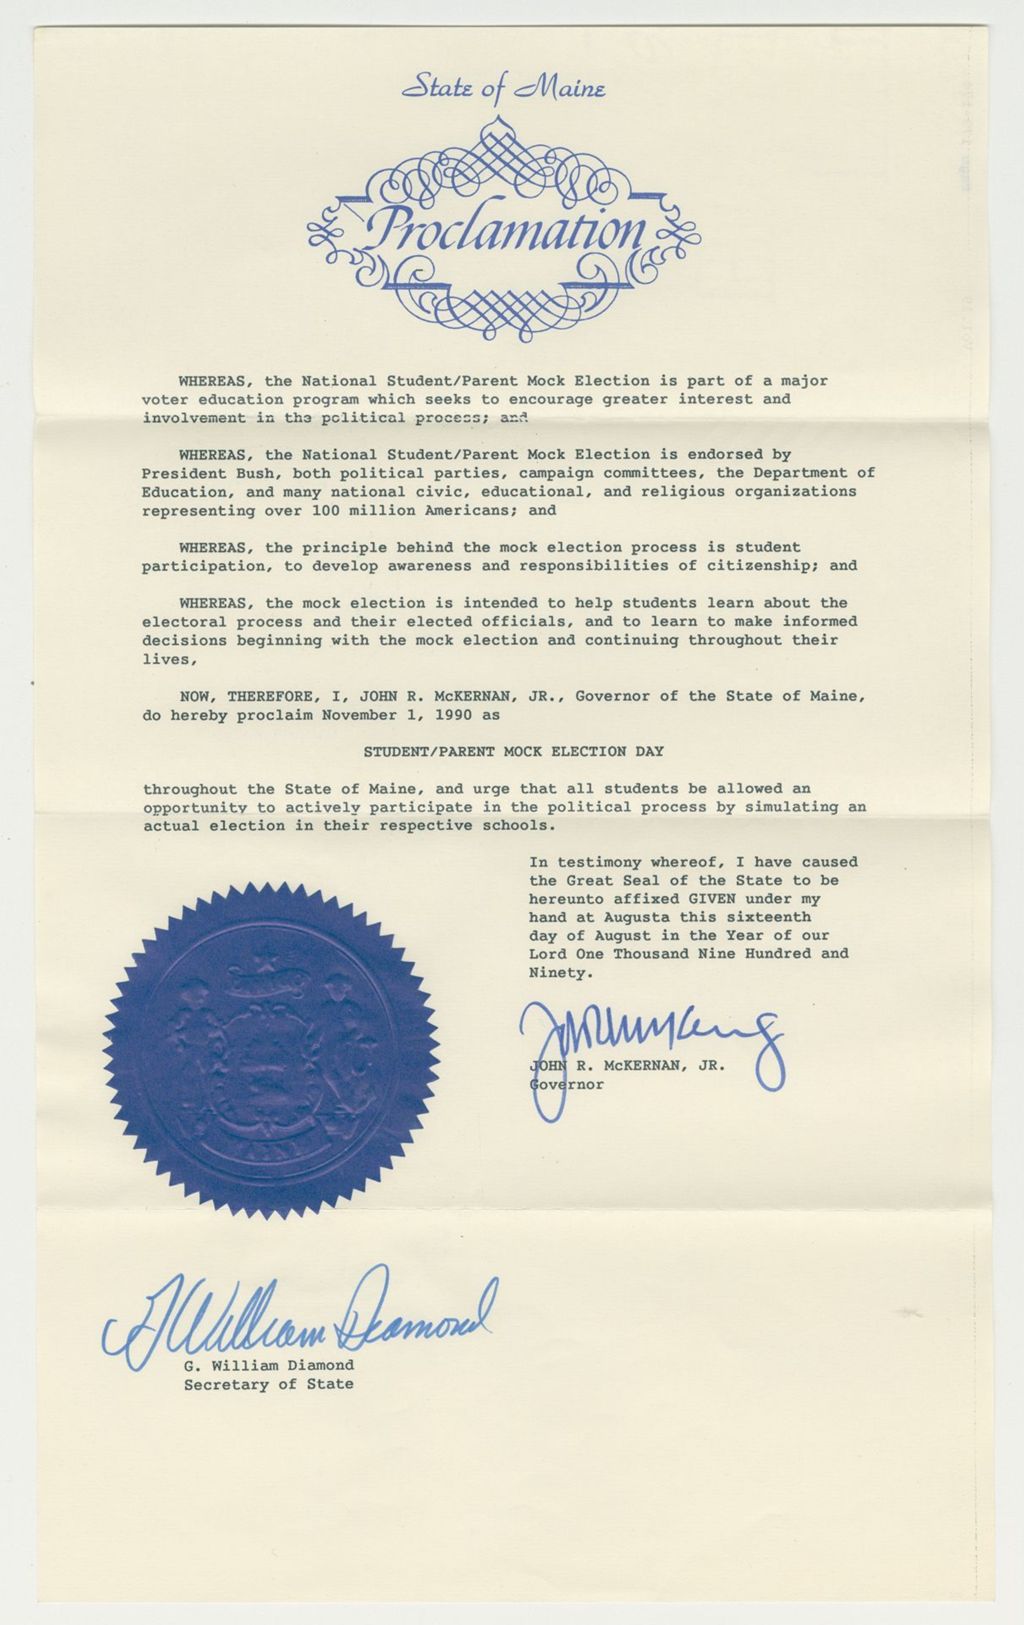 State of Maine
Proclamation
WHEREAS, the National Student/Parent Mock Election is part of a major
voter education program which seeks to encourage greater interest and
involvement in the political process; and
WHEREAS, the National Student/Parent Mock Election is endorsed by
President Bush, both political parties, campaign committees, the Department of
Education, and many national civic, educational, and religious organizations
representing over 100 million Americans; and
WHEREAS, the principle behind the mock election process is student
participation, to develop awareness and responsibilities of citizenship; and
WHEREAS, the mock election is intended to help students learn about the
electoral process and their elected officials, and to learn to make informed
decisions beginning with the mock election and continuing throughout their
lives,
NOW, THEREFORE, I, JOHN R. McKERNAN, JR., Governor of the State of Maine,
do hereby proclaim November 1, 1990 as
STUDENT/PARENT MOCK ELECTION DAY
throughout the State of Maine, and urge that all students be allowed an
opportunity to actively participate in the political process by simulating an
actual election in their respective schools.
In testimony whereof, I have caused
the Great Seal of the State to be
hereunto affixed GIVEN under my
hand at Augusta this sixteenth
day of August in the Year of our
Lord One Thousand Nine Hundred and
Ninety.
JOHN R. McKERNAN, JR.
Governor
MAINE
G William Diamond
G. William Diamond
Secretary of State